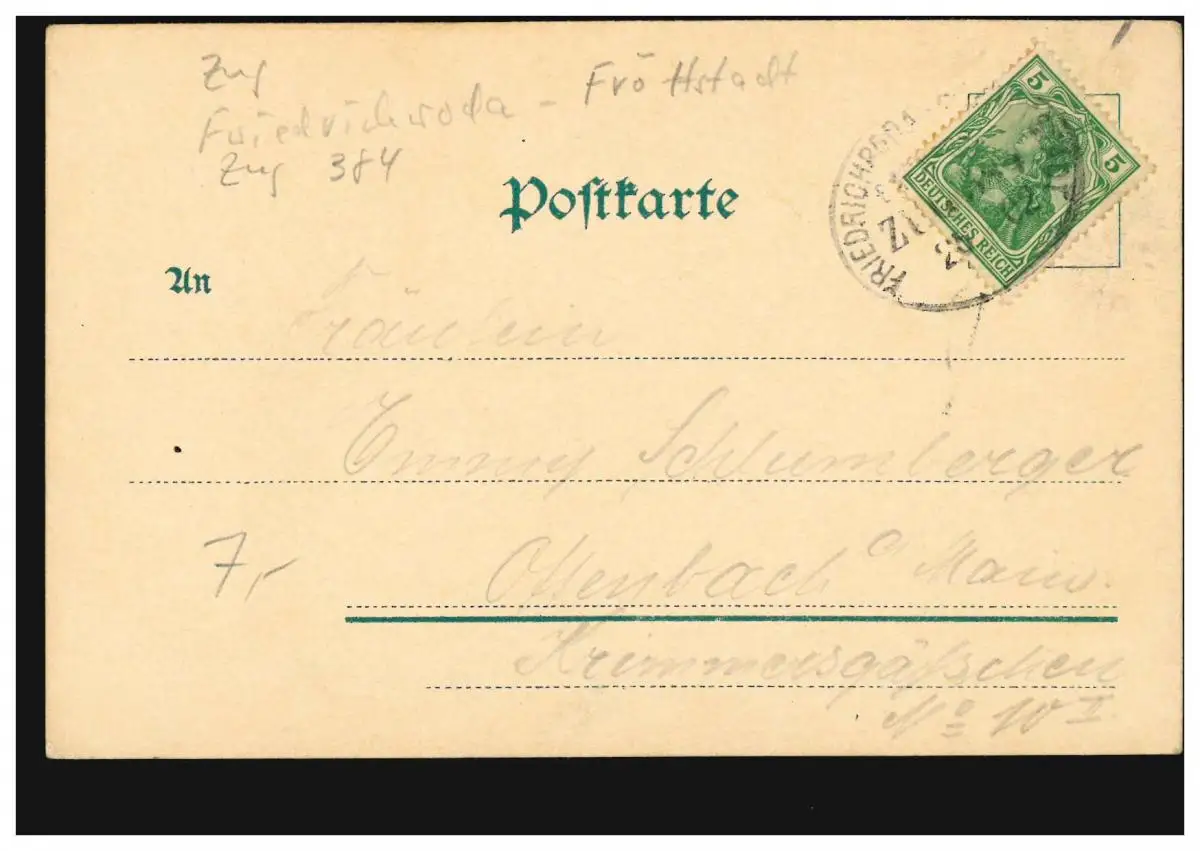 Zug
Friedrichroda - Fröttstadt
Zug 384
Postkarte
5
5
DEUTSCHES REICH
FRIEDRICHRODA
An
Fräulein
Emmy Schlumberger
Offenbach a/ Main.
7,-
Krimmersgäßchen
No 10 II